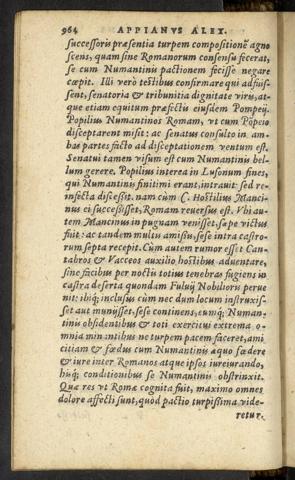 964 APPIANVS ALEX.
successoris præsentia turpem compositionẽ agno
scens, quam sine Romanorum consensu fecerat,
se cum Numantinis pactionem fecisse negare
cœpit. Illi verò testibus confirmare qui adfuis-
sent, senatoria & tribunitia dignitate viru, at-
que etiam equitum præfectis eiusdem Pompeij.
Popilius Numantinos Romam, vt cum Põpeio
disceptarent misit: ac senatus consulto in am-
bas partes facto ad disceptationem ventum est.
Senatui tamen visum est cum Numantinis bel-
lum gerere. Popilius interea in Lusonum fines,
qui Numantinis finitimi erant, intrauit: sed re
infecta discessit. nam cùm C. Hostilius Manci-
nus ei successisset, Romam reuersus est. Vbi au-
tem Mancinus in pugnam venisset, sæpe victus
fuit: ac tandem multis amissis, sese intra castro-
rum septa recepit. Cùm autem rumor esset Can-
tabros & Vacceos auxilio hostibus aduentare,
sine facibus per noctis totius tenebras fugiens in
castra deserta quondam Fuluij Nobilioris perue
nit: ibiq; inclusus cùm nec dum locum instruxis-
set aut munijsset, sese continens, eumq; Numan-
tinis obsidentibus & toti exercitui extrema o-
mnia minantibus ne turpem pacem faceret, ami
citiam & fœdus cum Numantinis æquo fœdere
& iure inter Romanos atque ipsos iureiurando,
hisq; conditionibus se Numantinis obstrinxit.
Quæ res vt Romæ cognita fuit, maximo omnes
dolore affecti sunt, quod pactio turpissima vide-
retur.